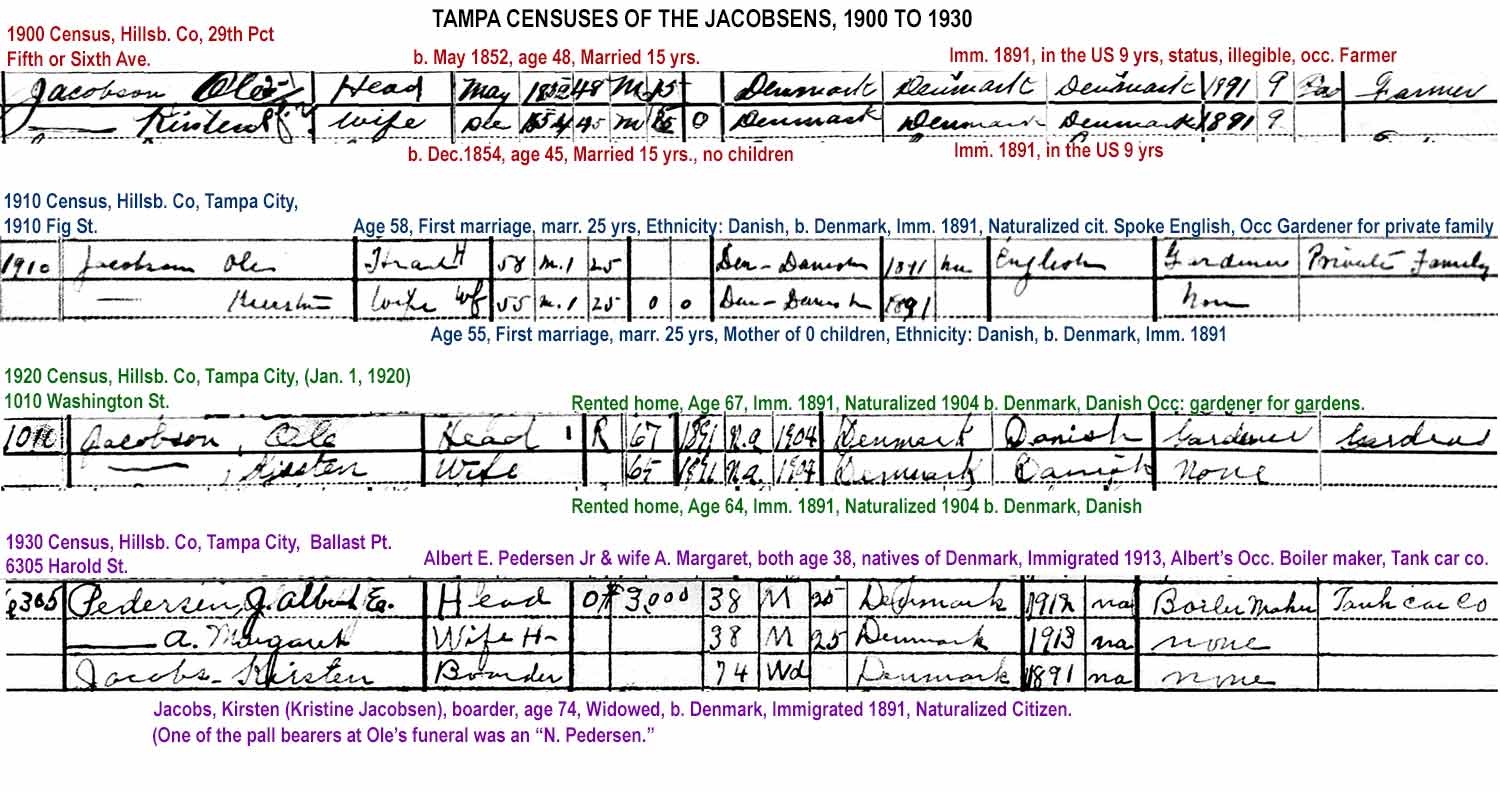 TAMPA CENSUSES OF THE JACOBSENS, 1900 TO 1930
1900 Census, Hillsb. Co, 29th Pct
Fifth or Sixth Ave.
b. May 1852, age 48, Married 15 yrs.
Imm. 1891, in the US 9 yrs, status, illegible, occ. Farmer
Jacobson Ole Head May 1852 48 M 15 Denmark Denmark Denmark 1891 9 Farmer
Kirsten Wife 45 M 15 0 Denmark Denmark Denmark 1891 9
b. Dec.1854, age 45, Married 15 yrs., no children
Imm. 1891, in the US 9 yrs
1910 Census, Hillsb. Co, Tampa City,
1910 Fig St.
Age 58, First marriage, marr. 25 yrs, Ethnicity: Danish, b. Denmark, Imm. 1891, Naturalized cit. Spoke English, Occ Gardener for private family
1910 Jacobson Ole Head 58 M.1 25 Den-Danish 1891 na English Gardener Private Family
Wife 55 M.1 25 0 0 Den-Danish 1891 None
Age 55, First marriage, marr. 25 yrs, Mother of 0 children, Ethnicity: Danish, b. Denmark, Imm. 1891
1920 Census, Hillsb. Co, Tampa City, (Jan. 1, 1920)
1010 Washington St.
Rented home, Age 67, Imm. 1891, Naturalized 1904 b. Denmark, Danish Occ: gardener for gardens.
1010 Jacobson, Ole Head 1 R 67 1891 Na 1904 Denmark Danish Gardener Gardens
, Kirsten Wife 65 1891 Na 1904 Denmark Danish None
Rented home, Age 64, Imm. 1891, Naturalized 1904 b. Denmark, Danish
1930 Census, Hillsb. Co, Tampa City, Ballast Pt.
6305 Harold St.
Albert E. Pedersen Jr & wife A. Margaret, both age 38, natives of Denmark, Immigrated 1913, Albert's Occ. Boiler maker, Tank car co.
6305 Pedersen, J. Albert Head O $3,000 38 M 25 Denmark na Boiler Maker Tank car Co
A. Margaret Wife H- 38 M 25 Denmark 1913 na none
Jacobs- Kirsten Boarder 74 Wd Denmark 1891 na none
Jacobs, Kirsten (Kristine Jacobsen), boarder, age 74, Widowed, b. Denmark, Immigrated 1891, Naturalized Citizen.
(One of the pall bearers at Ole's funeral was an “N. Pedersen.”